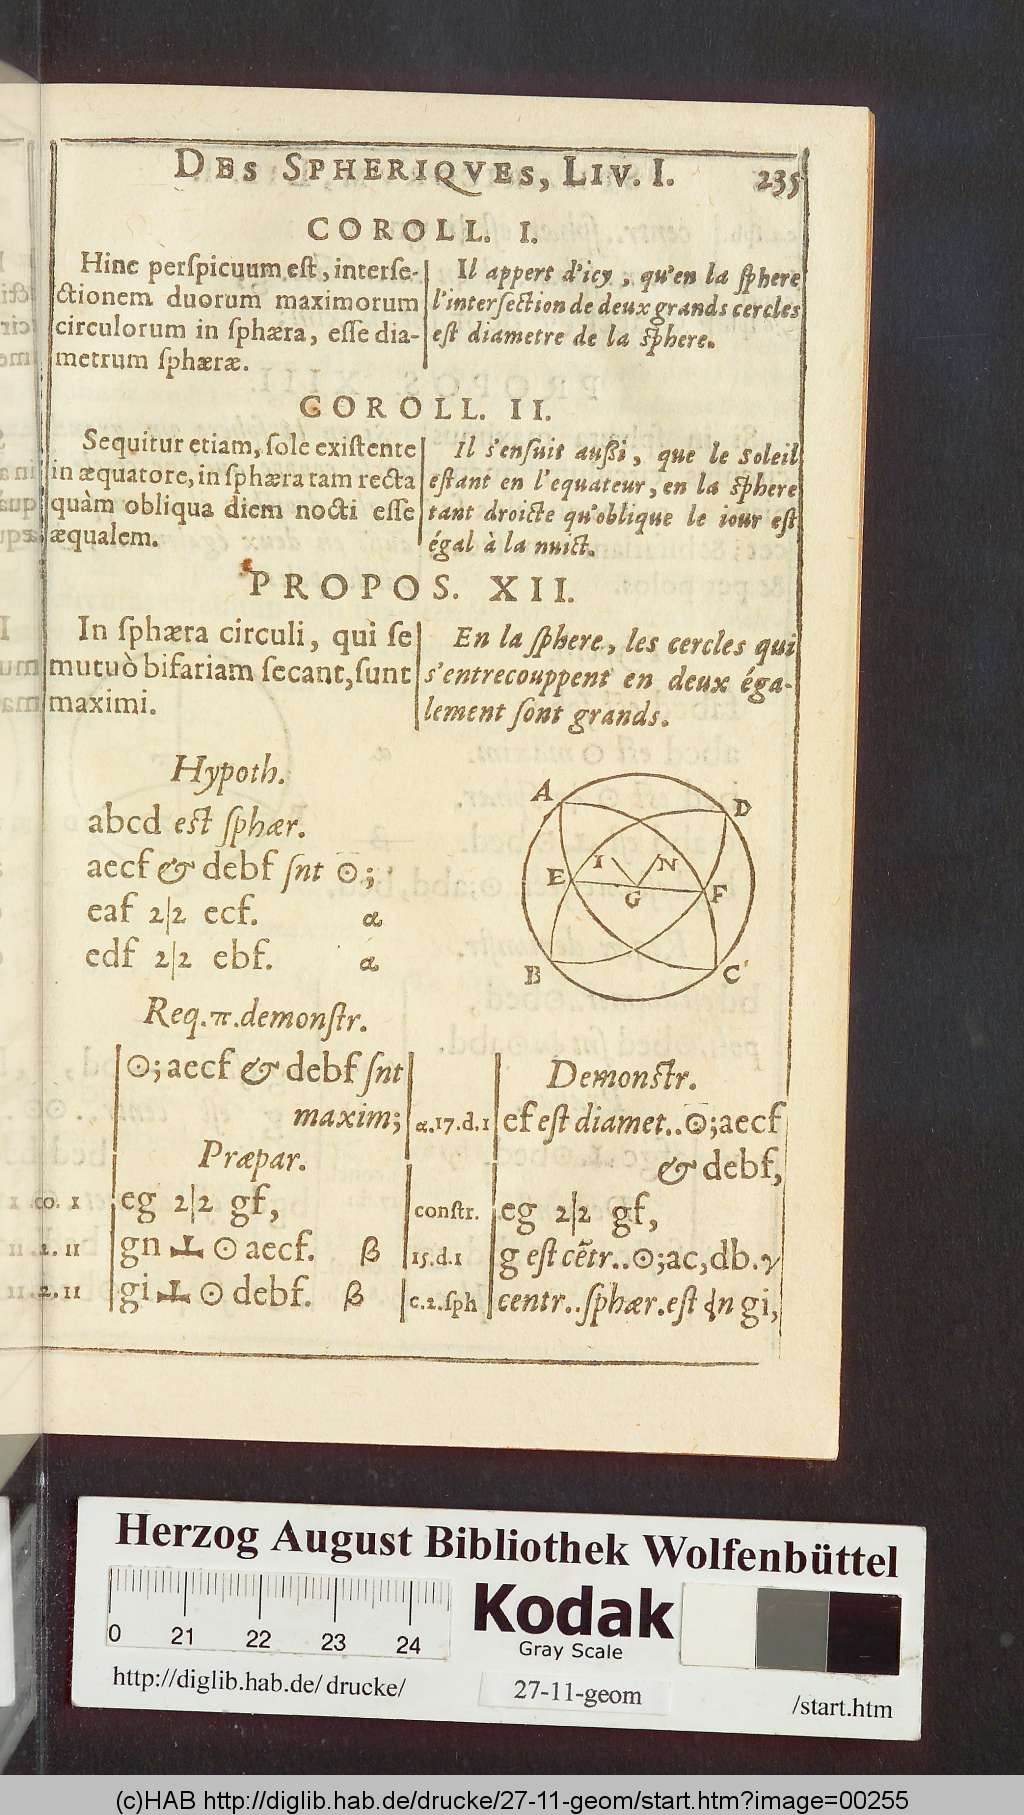 DES SPHERIQVES, LIV. I. 235
COROLL. I.
Hinc perspicuum est, interse-
ctionem duorum maximorum
circulorum in sphæra, esse dia-
metrum sphæræ.
Il appert d'icy, qu'en la sphere
l'intersection de deux grands cercles
est diametre de la sphere.
COROLL. II.
Sequitur etiam, sole existente
in æquatore, in sphæra tam recta
quàm obliqua diem nocti esse
æqualem.
Il s'ensuit aussi, que le Soleil
estant en l'equateur, en la sphere
tant droicte qu'oblique le iour est
égal à la nuict.
PROPOS. XII.
In sphæra circuli, qui se
mutuò bifariam secant, sunt
maximi.
En la sphere, les cercles qui
s'entrecouppent en deux éga-
lement sont grands.
Hypoth.
abcd est sphær.
aecf & debf snt ⊙;
eaf 2|2 ecf. α
edf 2|2 ebf. α
A
D
I
N
E
G
F
B
C
Req. π. demonstr.
⊙; aecf & debf snt
maxim;
Præpar.
1 .co. 1 eg 2|2 gf,
11.2.11 gn ⊥ ⊙ aecf. β
11.2.11 gi ⊥ ⊙ debf. β
Demonstr.
α.17.d.1 ef est diamet..⊙; aecf
& debf,
constr. eg 2|2 gf,
15.d.1 g est cẽtr..⊙; ac, db. γ
c.2.sph centr..sphær. est dn gi,
Herzog August Bibliothek Wolfenbüttel
0 21 22 23 24
Kodak
Gray Scale
http://diglib.hab.de/drucke/
27-11-geom
/start.htm
(c)HAB http://diglib.hab.de/drucke/27-11-geom/start.htm?image=00255